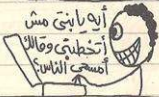 أيه يا بنتي مش
أتخطبتي وقالك
أمسحي الناس؟